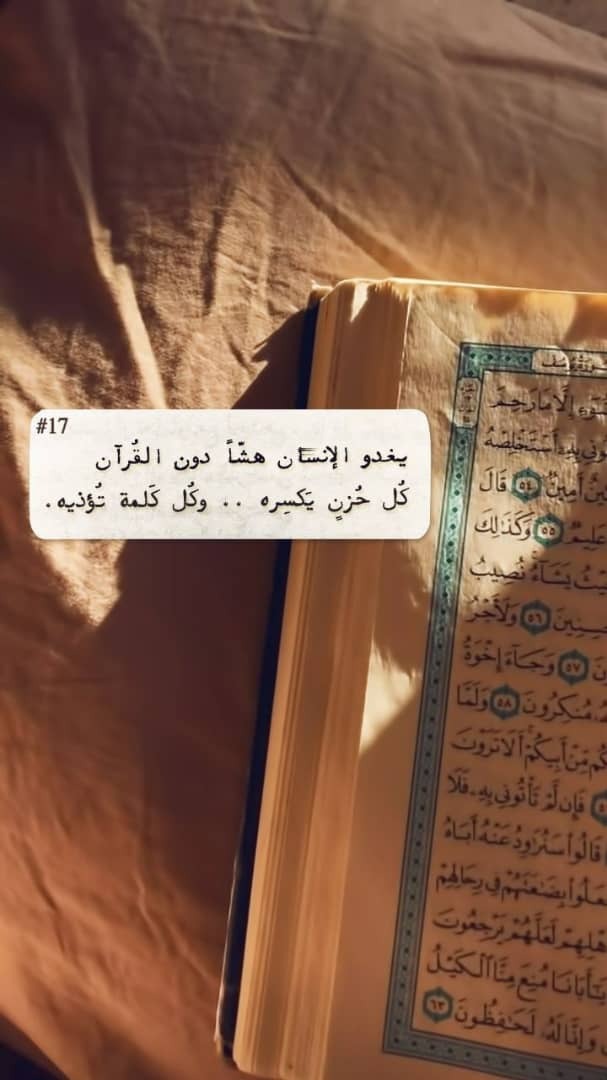 #17
يغدو الإنسان هشّاً دون القُرآن
كُل حُزنٍ يَكسِره .. وكُل كَلمة تُؤذيه.
إِلَّا مَا رَحِمَ
أَسْتَخْلِصْهُ
أَمِينٌ ٥٤ قَالَ
عَلِيمٌ ٥٥ وَكَذَٰلِكَ
يَشَآءُ نُصِيبُ
٥٦ وَلَأَجْرُ
٥٧ وَجَآءَ إِخْوَةُ
مُنكِرُونَ ٥٨ وَلَمَّا
مِّنْ أَبِيكُمْ أَلَا تَرَوْنَ
فَإِن لَّمْ تَأْتُونِي بِهِۦ فَلَا
قَالُوا۟ سَنُرَٰوِدُ عَنْهُ أَبَاهُ
بِضَٰعَتَهُمْ فِي رِحَالِهِمْ
لَعَلَّهُمْ يَرْجِعُونَ
مُنِعَ مِنَّا ٱلْكَيْلُ
وَإِنَّا لَهُۥ لَحَٰفِظُونَ ٦٣